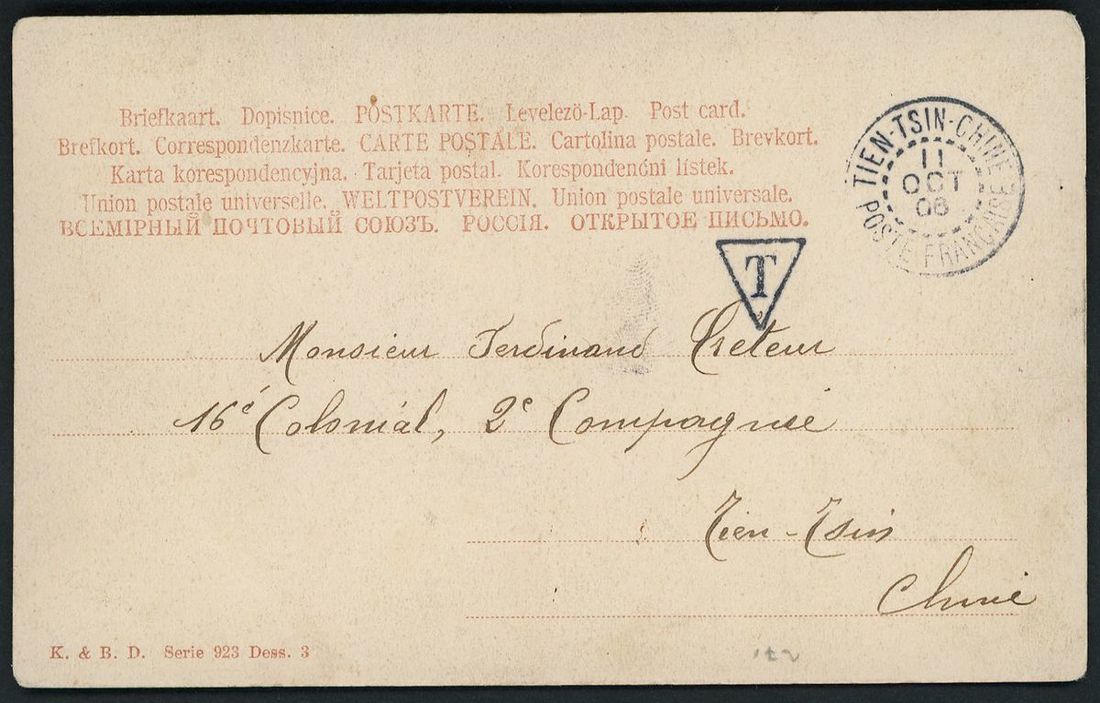 Briefkaart. Dopisnice. POSTKARTE. Levelezö-Lap. Post card.
Brefkort. Correspondenzkarte. CARTE POSTALE. Cartolina postale. Brevkort.
Karta korespondencyjna. Tarjeta postal. Korespondenčni listek.
Union postale universelle. WELTPOSTVEREIN. Union postale universale.
ВСЕМІРНЫЙ ПОЧТОВЫЙ СОЮЗЪ. РОССІЯ. ОТКРЫТОЕ ПИСЬМО.
TIEN-TSIN-CHINE
11
OCT
06
POSTE FRANCAISE
T
Monsieur Ferdinand Creteur
16e Colonial, 2e Compagnie
Tien-Tsin
Chine
K. & B. D. Serie 923 Dess. 3